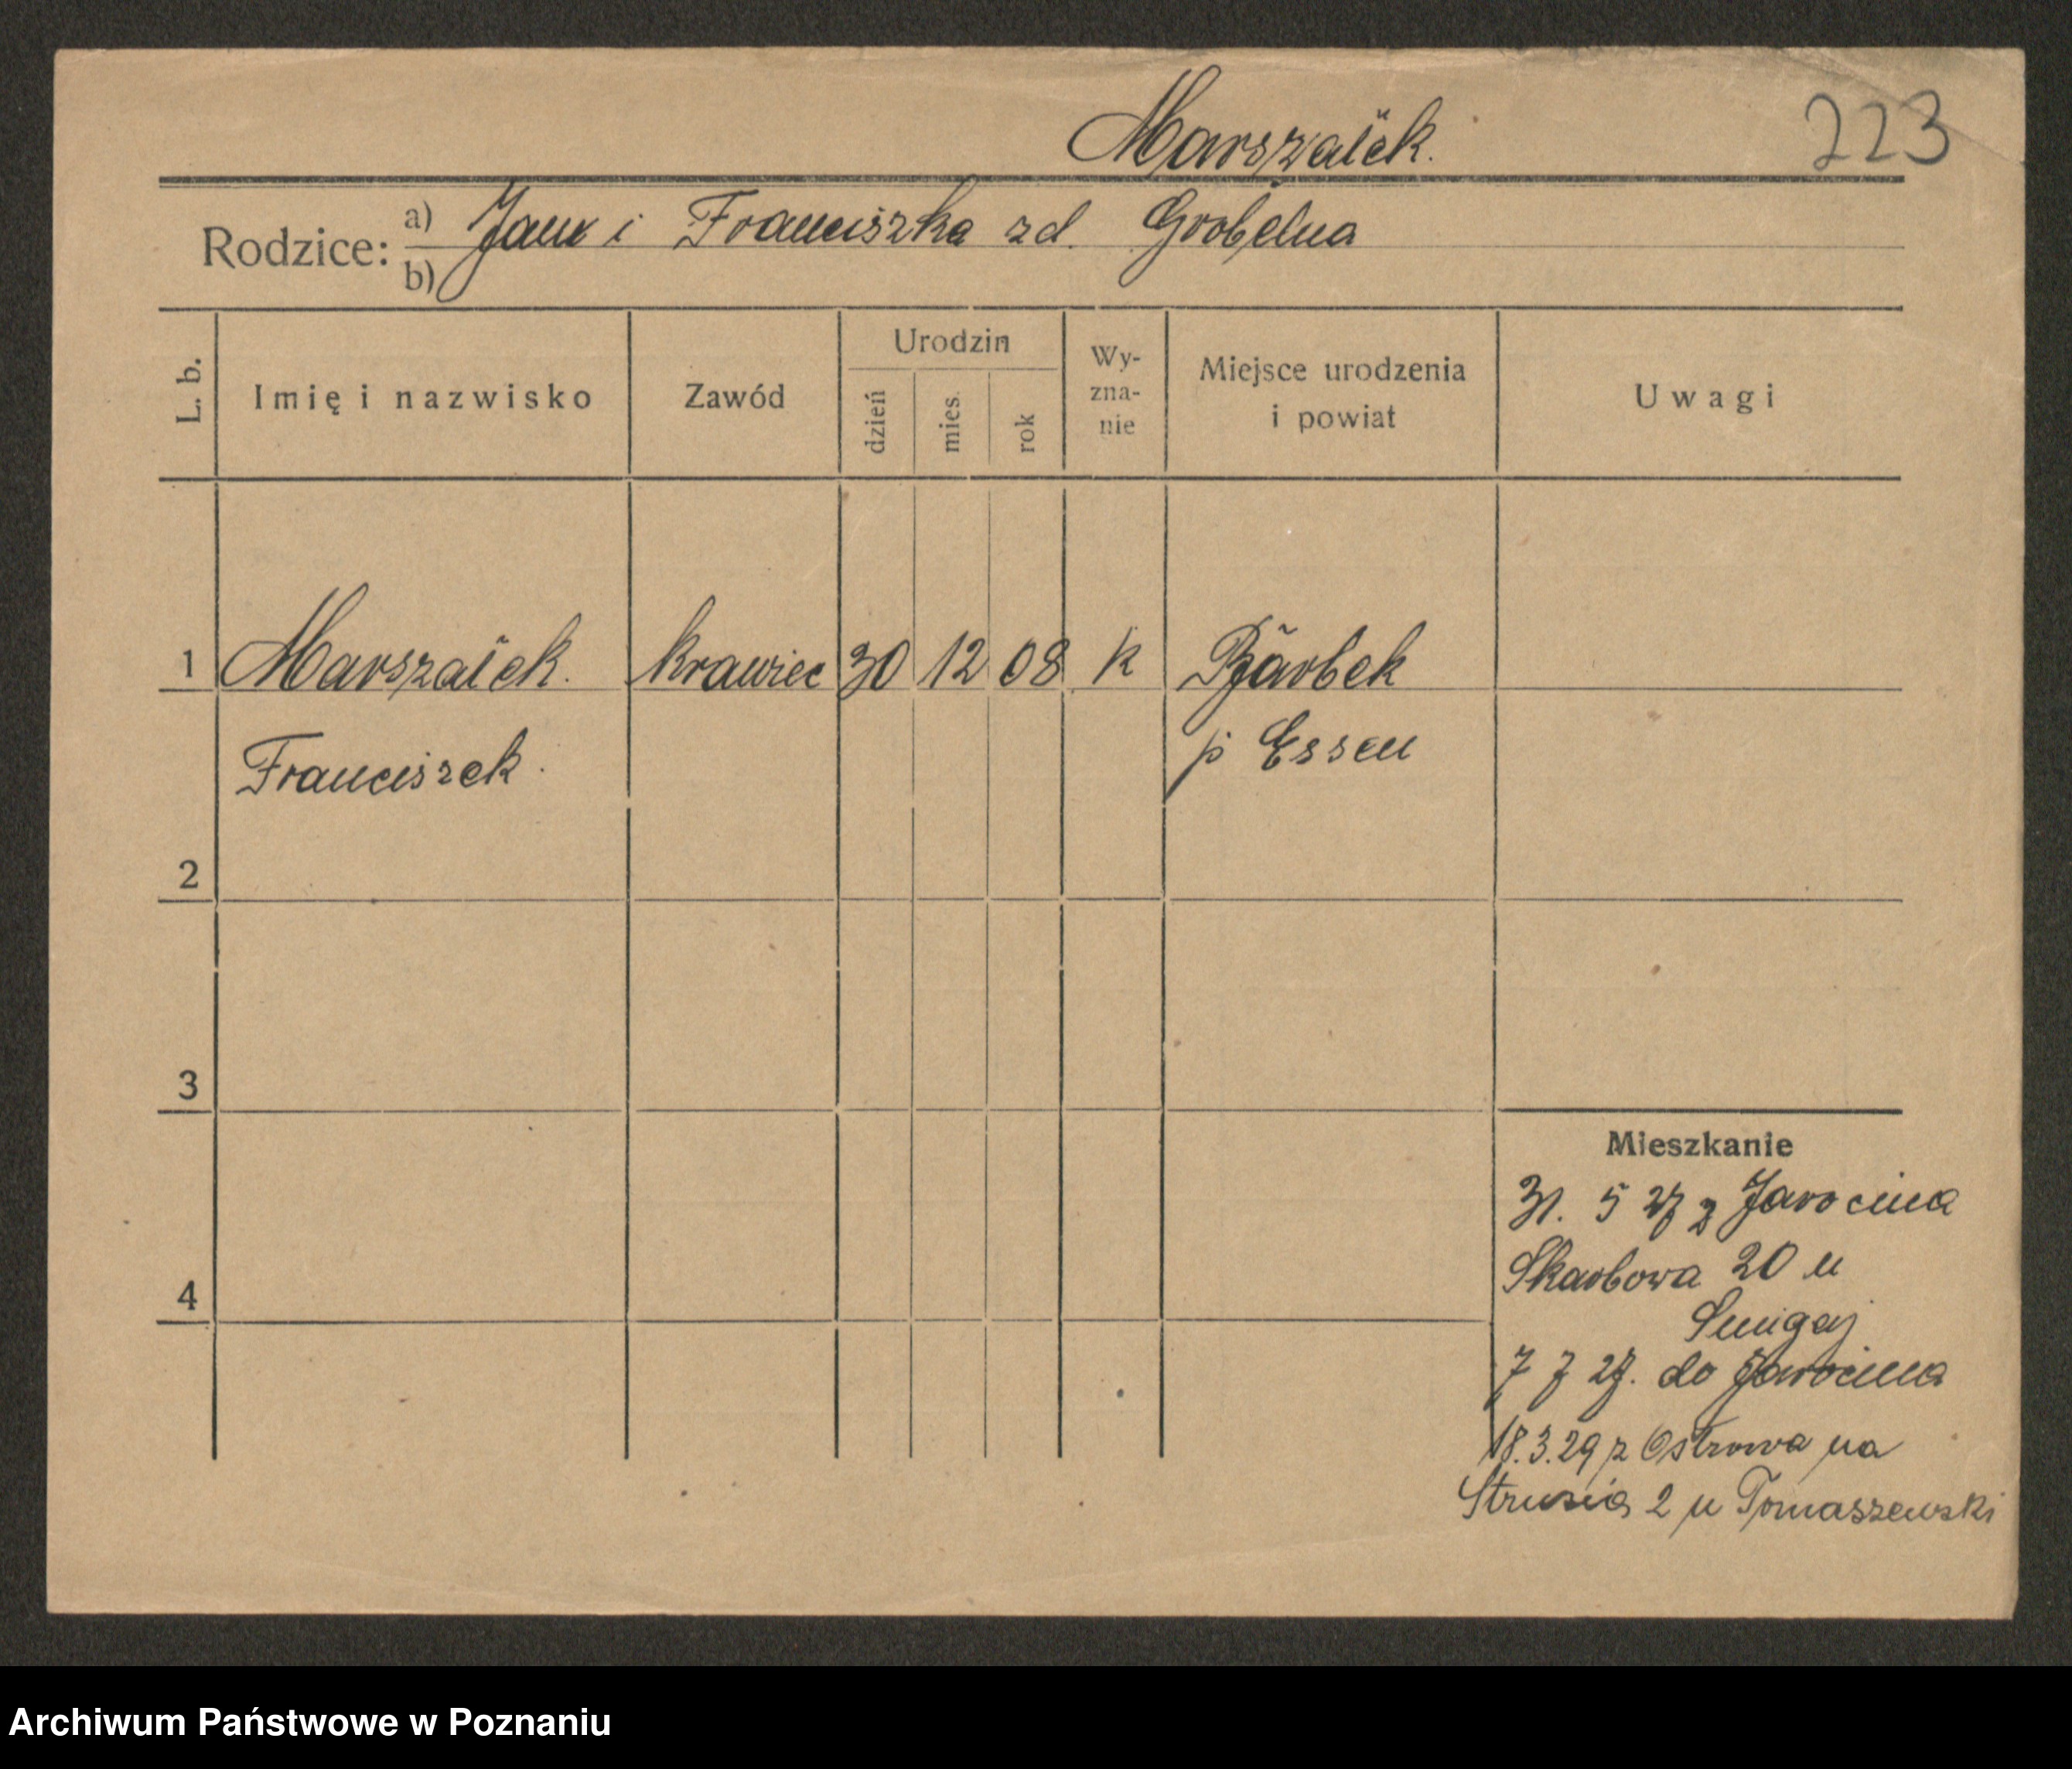 Marszałek.
223
Rodzice: a) Jan i Franciszka zd. Grobelna
b)
L. b.
Imię i nazwisko
Zawód
Urodzin
dzień
mies.
rok
Wy-
zna-
nie
Miejsce urodzenia
i powiat
Uwagi
1 Marszałek. krawiec 30 12 08 k
Franciszek.
p Essen
2
3
4
Mieszkanie
31. 5 27 z Jarocina
Skarbowa 20 u
Smigaj
7 7 27. do Jarocina
18.3.29 z Ostrowa na
Strusia 2 u Tomaszewski
Archiwum Państwowe w Poznaniu